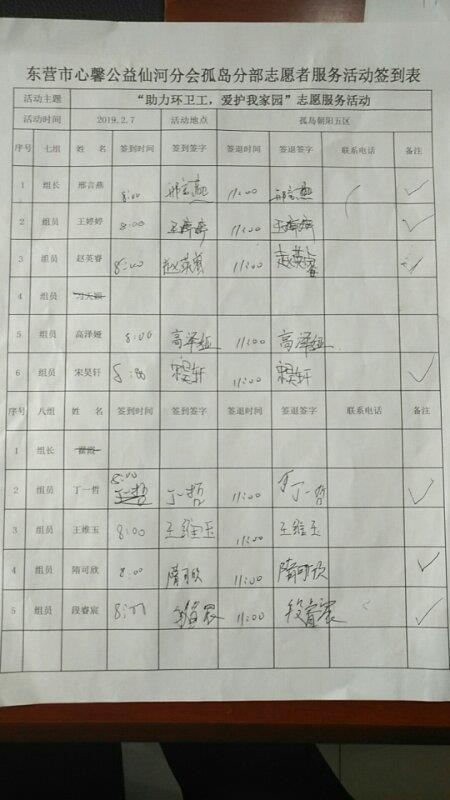 东营市心馨公益仙河分会孤岛分部志愿者服务活动签到表
活动主题 “助力环卫工，爱护我家园”志愿服务活动
活动时间 2019.2.7 活动地点 孤岛朝阳五区
序号 七组 姓名 签到时间 签到签字 签退时间 签退签字 联系电话 备注
1 组长 邢言燕 8:00 邢言燕 11:00 邢言燕 ✓
2 组员 王婷婷 8:00 王婷婷 11:00 王婷婷 ✓
3 组员 赵英睿 8:00 赵英睿 11:00 赵英睿 ✓
4 组员
5 组员 高泽娅 8:00 高泽娅 11:00 高泽娅
6 组员 宋昊轩 8:00 宋昊轩 11:00 宋昊轩 ✓
序号 八组 姓名 签到时间 签到签字 签退时间 签退签字 联系电话 备注
1 组长
2 组员 丁一哲 8:00 丁一哲 丁一哲 11:00 丁一哲 ✓
3 组员 王维玉 8:00 王维玉 11:00 王维玉
4 组员 隋可欣 8:00 隋可欣 11:00 隋可欣 ✓
5 组员 段睿宸 8:00 段睿宸 11:00 段睿宸 ✓